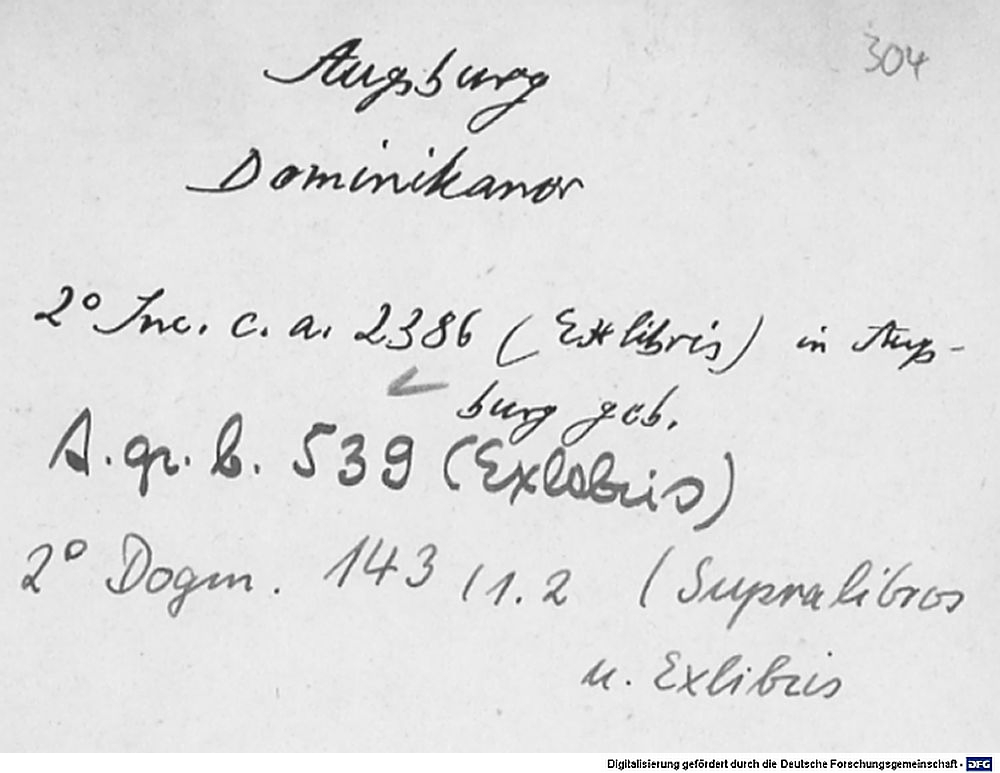 304
Augsburg
Dominikaner
2° Inc. c. a. 2386 (Exlibris) in Augs-
burg geb.
A. gr. b. 539 (Exlibris)
2° Dogm. 143 /1.2 (Supralibros
u. Exlibris
Digitalisierung gefördert durch die Deutsche Forschungsgemeinschaft - DFG